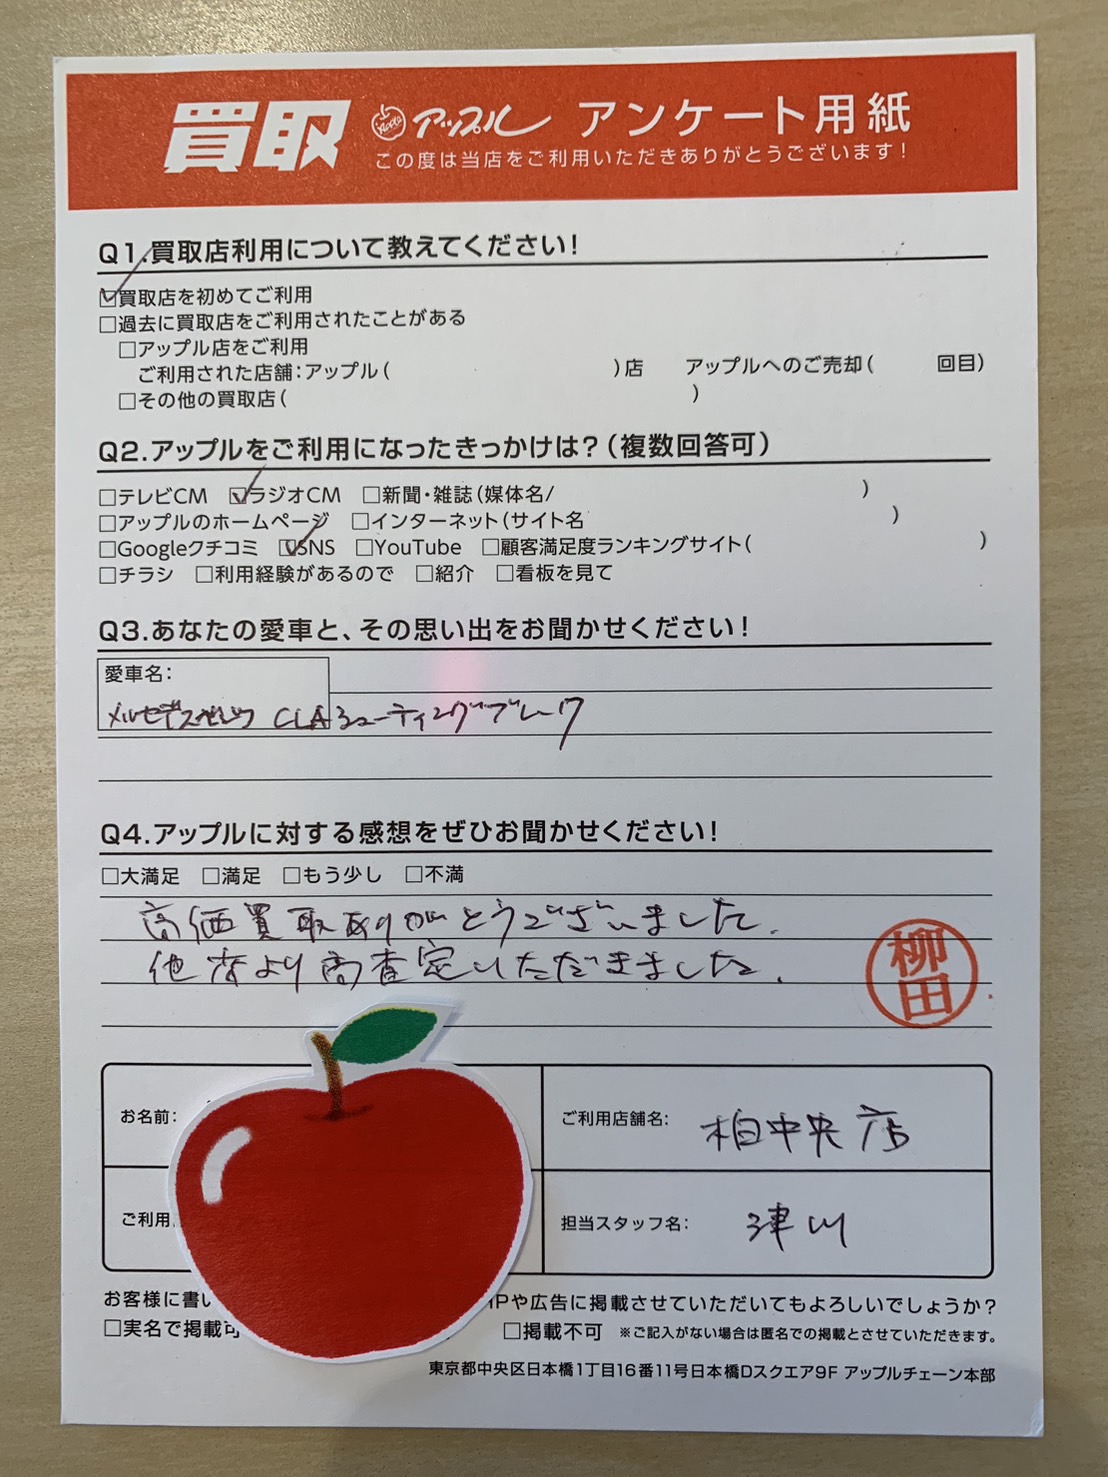 買取 アップル アンケート用紙
この度は当店をご利用いただきありがとうございます！
Q1.買取店利用について教えてください！
☑買取店を初めてご利用
□過去に買取店をご利用されたことがある
□アップル店をご利用
ご利用された店舗：アップル（ ）店 アップルへのご売却（ 回目）
□その他の買取店（ ）
Q2.アップルをご利用になったきっかけは？（複数回答可）
□テレビCM ☑ラジオCM □新聞・雑誌（媒体名/ ）
□アップルのホームページ □インターネット（サイト名 ）
□Googleクチコミ ☑SNS □YouTube □顧客満足度ランキングサイト（ ）
□チラシ □利用経験があるので □紹介 □看板を見て
Q3.あなたの愛車と、その思い出をお聞かせください！
愛車名：
メルセデスベンツ CLAシューティングブレーク
Q4.アップルに対する感想をぜひお聞かせください！
□大満足 □満足 □もう少し □不満
高価買取ありがとうございました.
他店より高査定いただきました.
柳田
お名前： ご利用店舗名： 柏中央店
ご利用 担当スタッフ名： 津川
お客様に書い HPや広告に掲載させていただいてもよろしいでしょうか？
□実名で掲載可 □掲載不可 ※ご記入がない場合は匿名での掲載とさせていただきます。
東京都中央区日本橋1丁目16番11号日本橋Dスクエア9F アップルチェーン本部